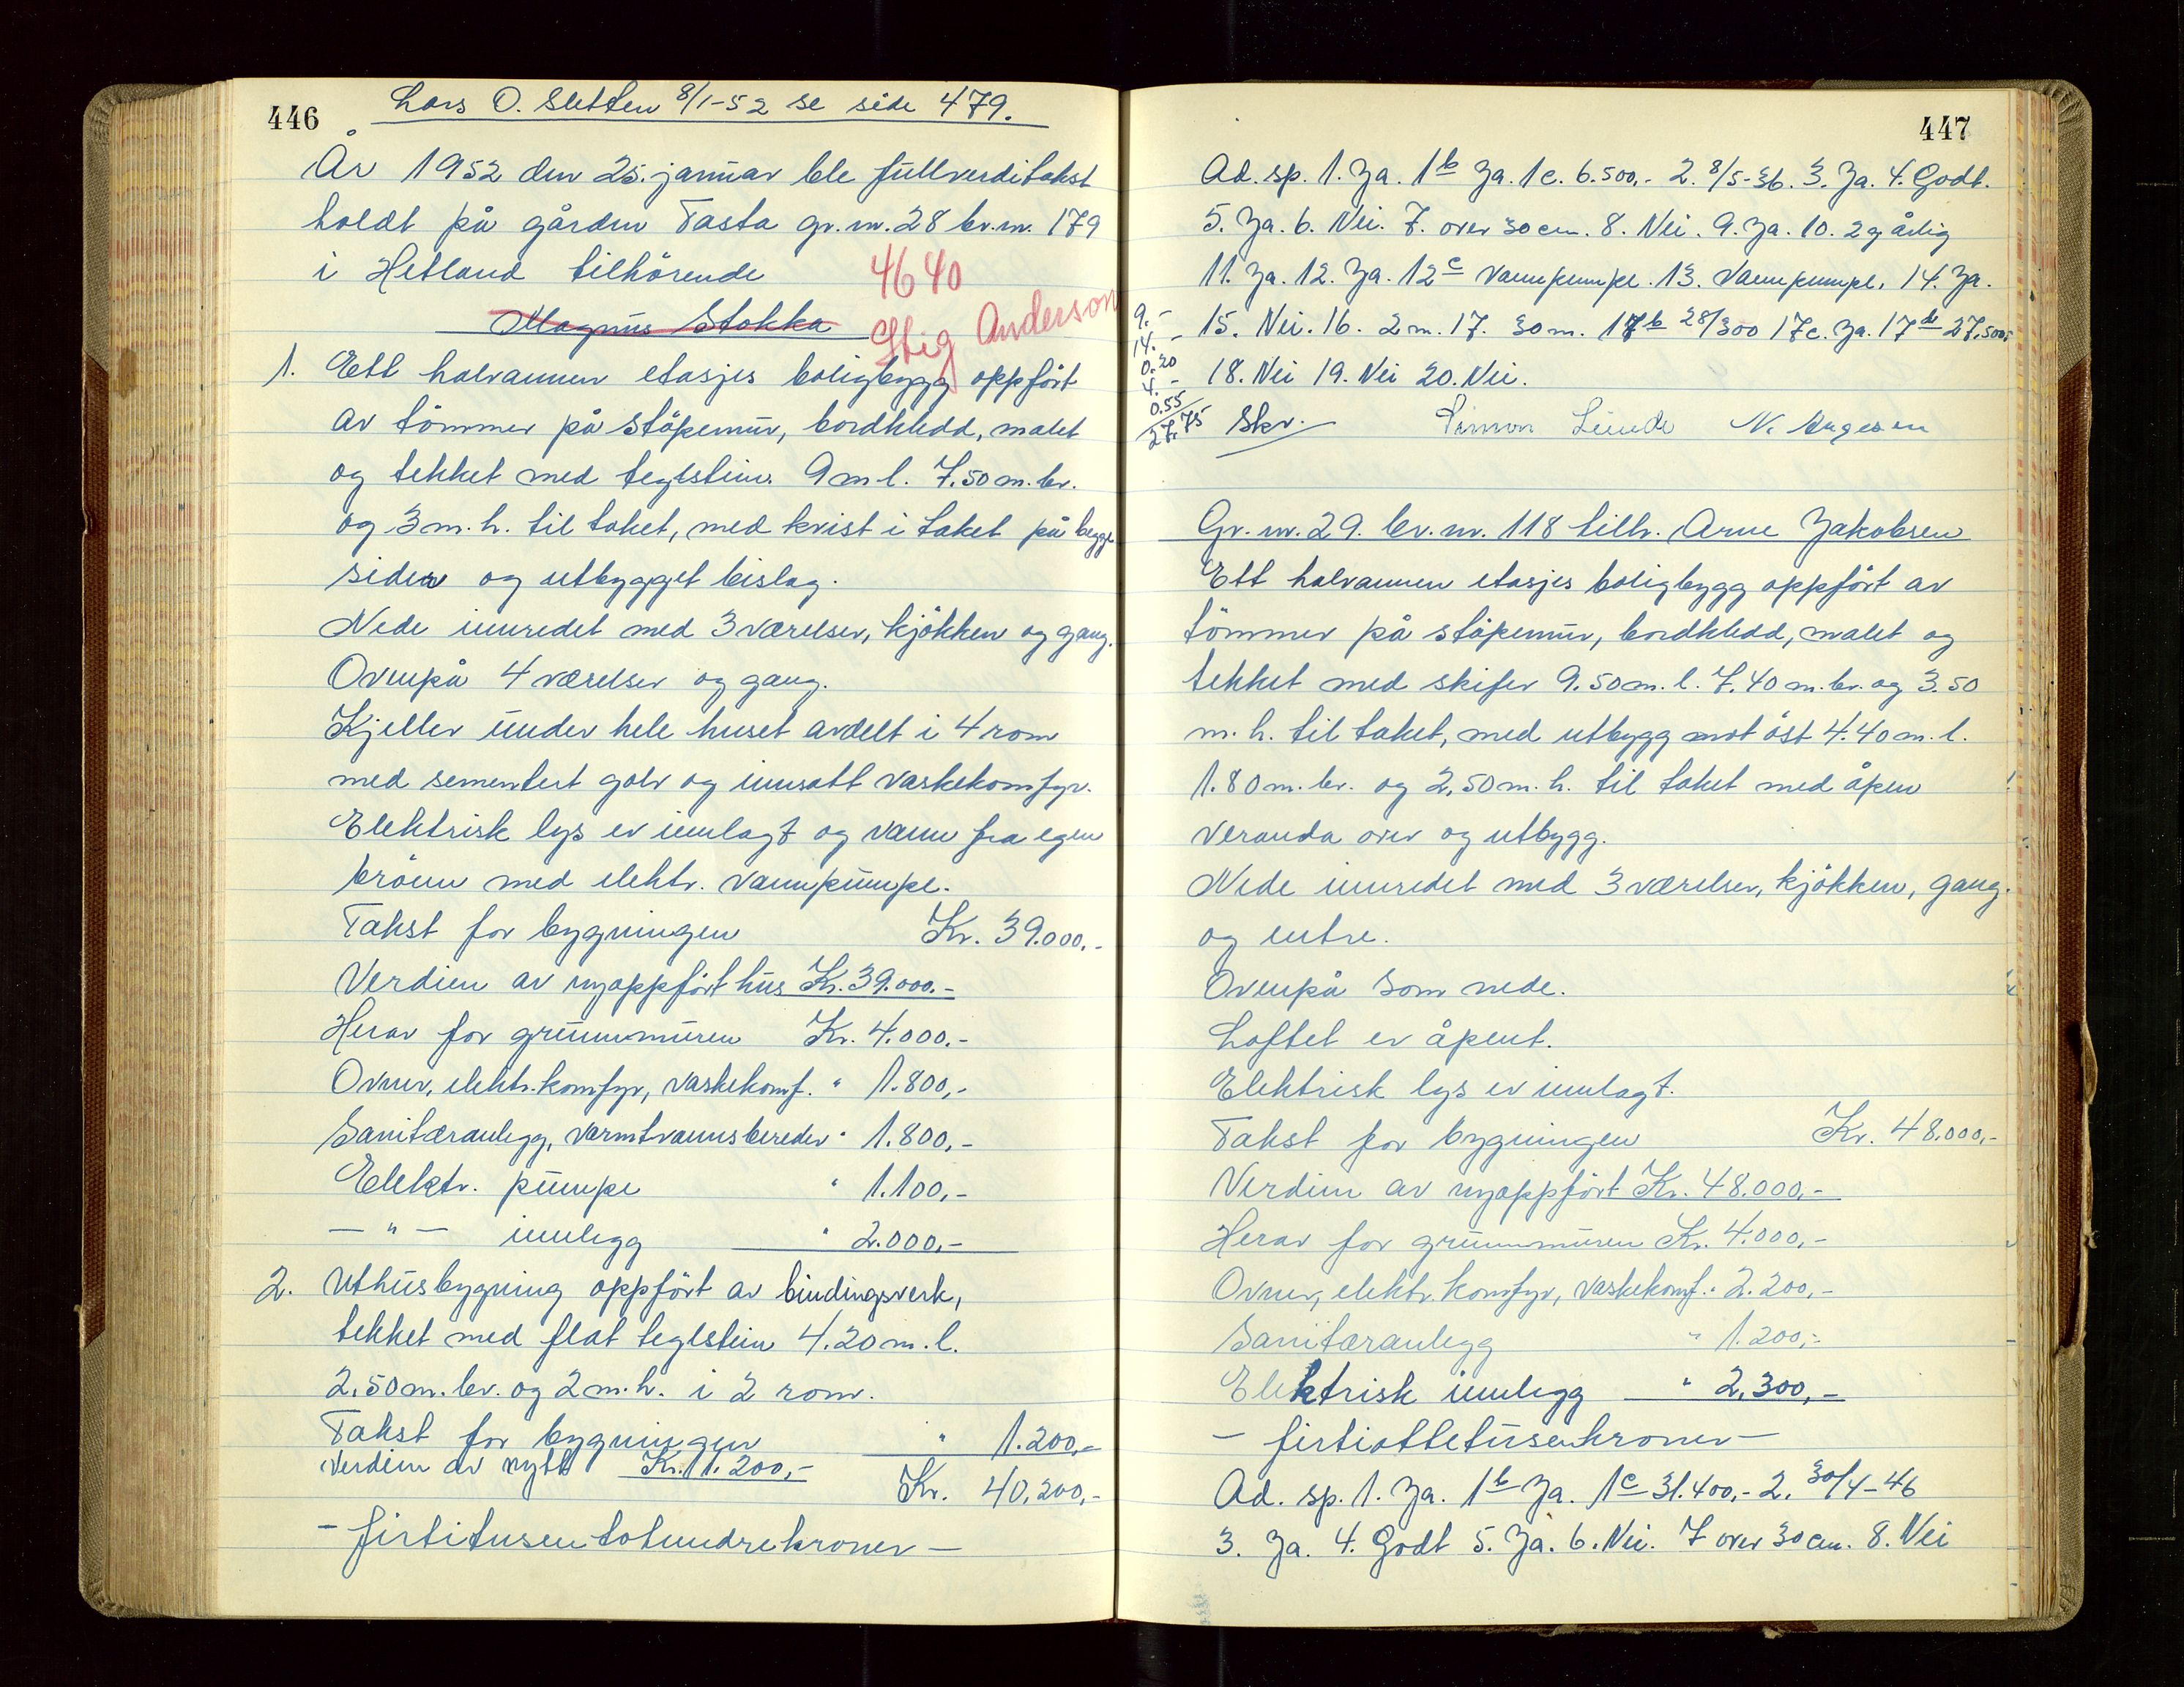 446
Lars O. Sletten 8/1-52 se side 479.
År 1952 den 25. januar ble fullverditakst
holdt på gården Tasta gr.nr. 28 br.nr. 179
i Hetland tilhörende 4640
Magnus Stokka Stig Anderson
1. Ett halvannen etasjes boligbygg oppfört
av tömmer på stöpemur, bordkledd, malet
og tekket med teglstein. 9 m l. 7.50 m. br.
og 3 m. h. til taket, med kvist i taket på begge
sider og utbygget bislag.
Nede innredet med 3 værelser, kjökken og gang.
Ovenpå 4 værelser og gang.
Kjeller under hele huset avdelt i 4 rom
med sementert golv og innsatt vaskekomfyr.
Elektrisk lys er innlagt og vann fra egen
brönn med elektr. vannpumpe.
Takst for bygningen Kr. 39.000.-
Verdien av nyoppfört hus Kr. 39.000.-
Herav for grunnmuren Kr. 4.000.-
Ovner, elektr. komfyr, vaskekomf. " 1.800,-
Sanitæranlegg, varmtvannsbereder " 1.800,-
Elektr. pumpe " 1.100,-
— " — innlegg " 2.000,-
2. Uthusbygning oppfört av bindingsverk,
tekket med flat teglstein 4.20 m. l.
2.50 m. br. og 2 m. h. i 2 rom.
Takst for bygningen " 1.200,-
Verdien av nytt Kr. 1.200,-
Kr. 40.200,-
- firtitusentohundrekroner -
447
Ad. sp. 1. Ja. 1b Ja. 1c. 6.500,- 2. 8/5-36. 3. Ja. 4. Godt.
5. Ja. 6. Nei. 7. over 30 cm. 8. Nei. 9. Ja. 10. 2 g årlig
11. Ja. 12. Ja. 12c Vannpumpe. 13. Vannpumpe. 14. Ja.
15. Nei. 16. 2 m. 17. 30 m. 17b 28/300 17c. Ja. 17d 27.500,-
18. Nei 19. Nei 20. Nei.
9.-
14.-
0.20
4.-
0.55
27.75
Skr. Simon Lunde
Gr. nr. 29. br. nr. 118 tilh. Arne Jakobsen
Ett halvannen etasjes boligbygg oppfört av
tömmer på stöpemur, bordkledd, malet og
tekket med skifer 9.50 m. l. 7.40 m. br. og 3.50
m. h. til taket, med utbygg mot öst 4.40 m. l.
1.80 m. br. og 2,50 m. h. til taket med åpen
veranda over og utbygg.
Nede innredet med 3 værelser, kjökken, gang.
og entre.
Ovenpå som nede.
Loftet er åpent.
Elektrisk lys er innlagt.
Takst for bygningen Kr. 48.000,-
Verdien av nyoppfört Kr. 48.000,-
Herav for grunnmuren Kr. 4.000,-
Ovner, elektr. komfyr, vaskekomf. " 2.200,-
Sanitæranlegg " 1.200,-
Elektrisk innlegg " 2,300,-
- firtiottetusenkroner -
Ad. sp. 1. Ja. 1b Ja. 1c 31.400,- 2. 30/4-46
3. Ja. 4. Godt 5. Ja. 6. Nei. 7 over 30 cm. 8. Nei